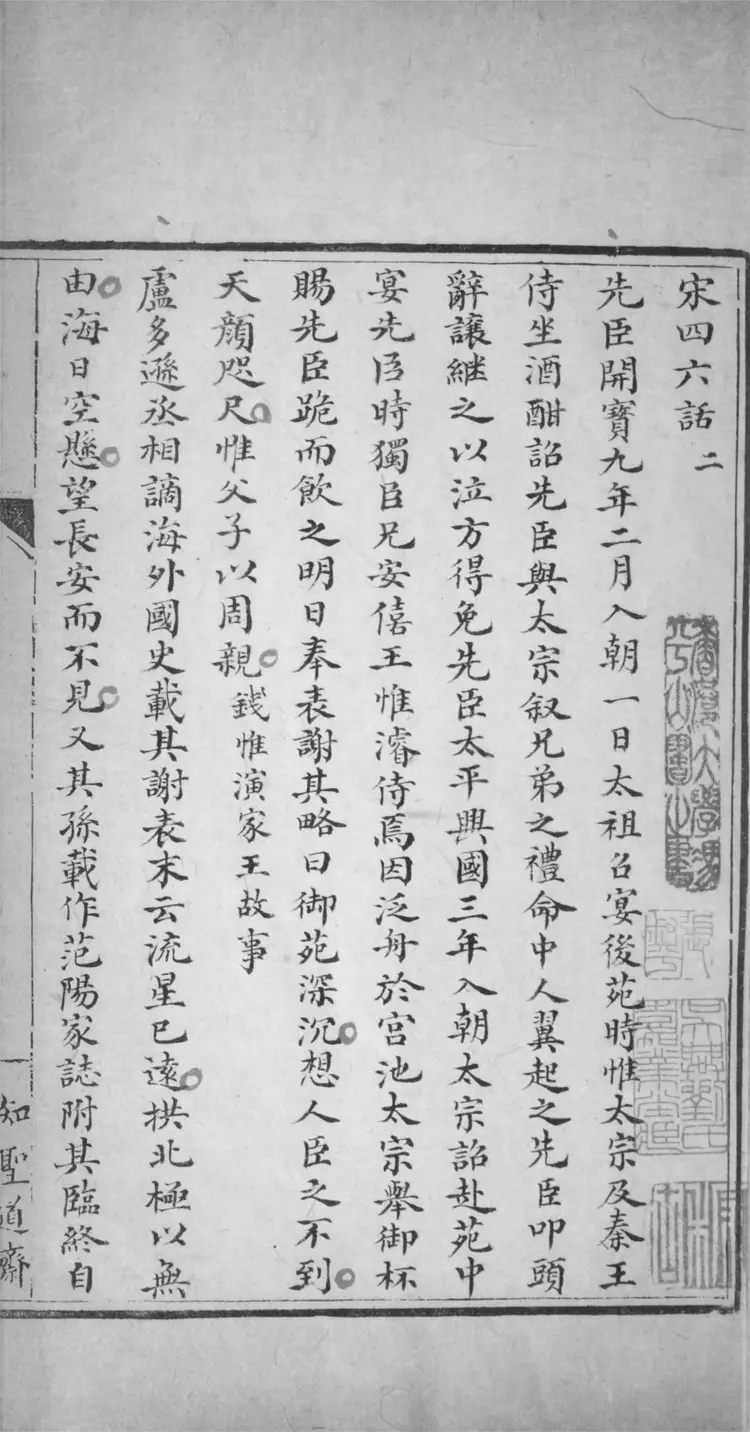 宋四六話 二
先臣開寶九年二月入朝一日太祖召宴後苑時惟太宗及秦王
侍坐酒酣詔先臣與太宗叙兄弟之禮命中人翼起之先臣叩頭
辭讓継之以泣方得免先臣太平興國三年入朝太宗詔赴苑中
宴先臣時獨臣兄安僖王惟濬侍焉因泛舟於宮池太宗舉御杯
賜先臣跪而飲之明日奉表謝其略曰御苑深沉想人臣之不到
天顏咫尺惟父子以周親 錢惟演家王故事
盧多遜丞相謫海外國史載其謝表末云流星已遠拱北極以無
由海日空懸望長安而不見又其孫載作范陽家誌附其臨終自
一 知聖道齋